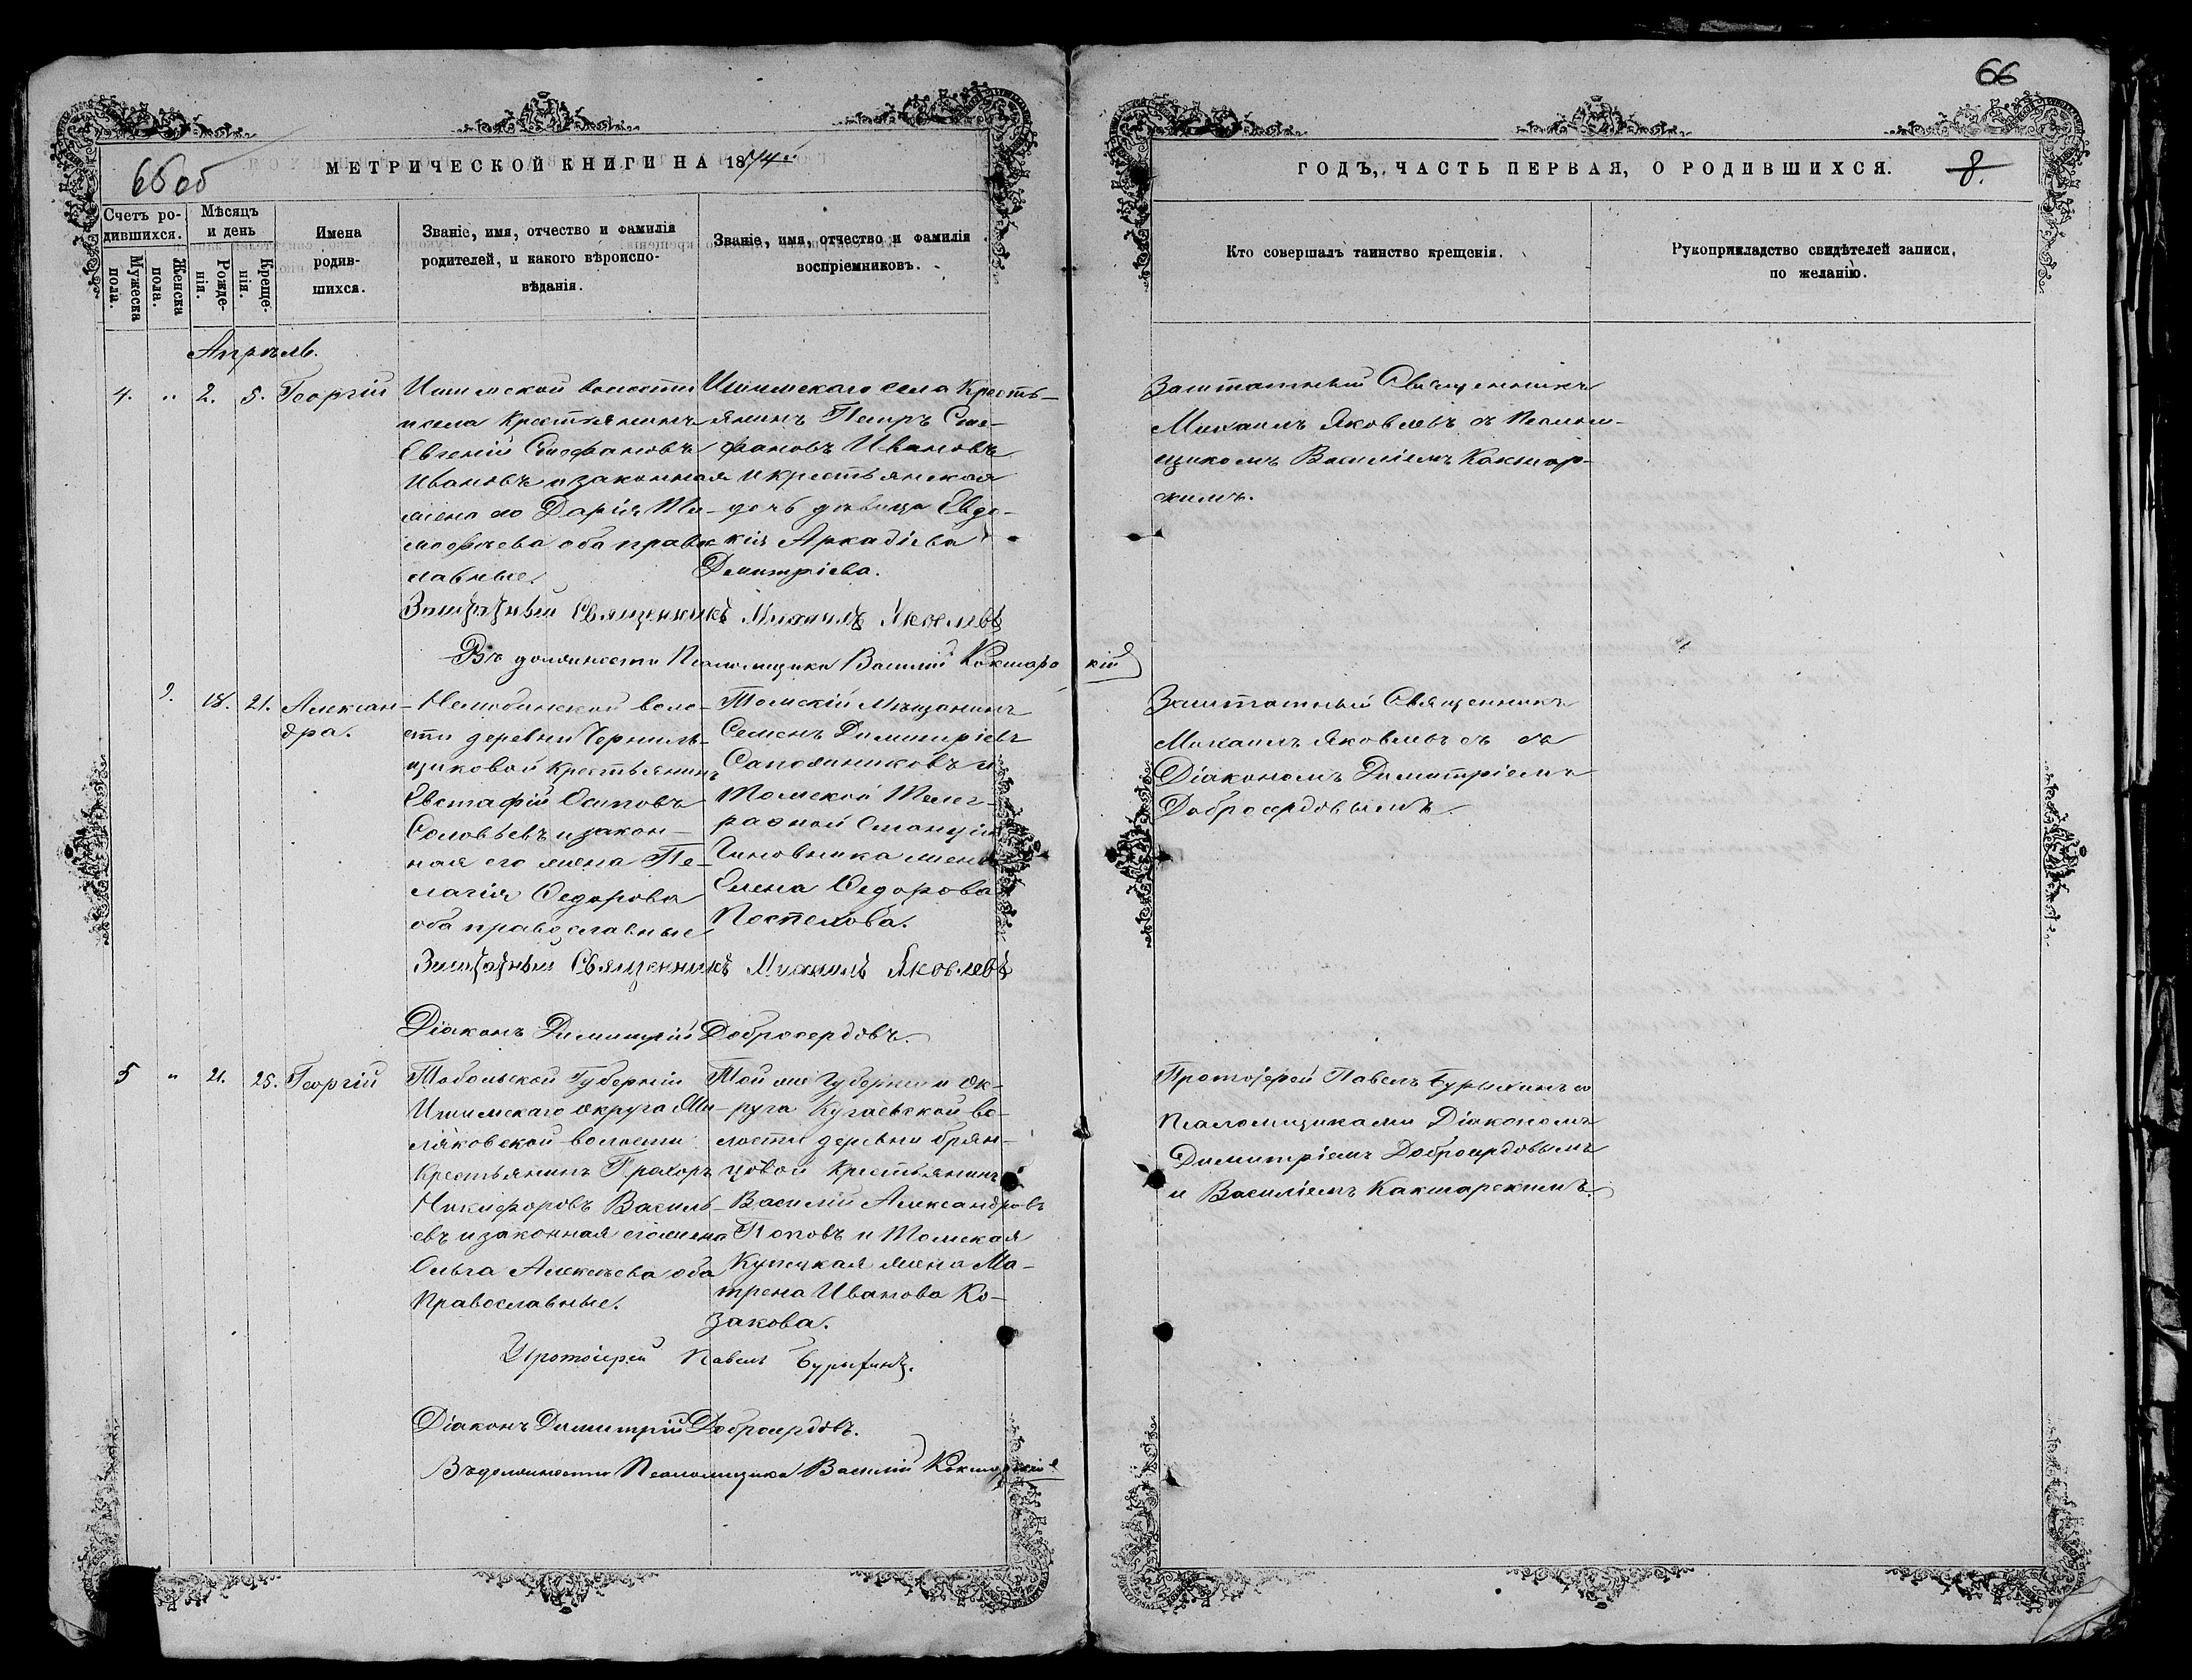 65об
МЕТРИЧЕСКОЙ КНИГИ НА 1874й
Счетъ ро-
дившихся.
Мужеска
пола.
Женска
пола.
Мѣсяцъ
и день
Рожде-
нія.
Креще-
нія.
Имена
родив-
шихся.
Званіе, имя, отчество и фамилія
родителей, и какого вѣроиспо-
вѣданія.
Званіе, имя, отчество и фамилія
воспріемниковъ.
Апрѣль.
4. " 2. 5. Георгій
Ишимской волости
и села Крестьянинъ
Евгеній Стефановъ
Ивановъ и законная
жена его Дарія Ти-
моѳѣева оба правос
лавные.
Ишимскаго села Кресть-
янинъ Петръ Сте-
фановъ Ивановъ
и крестьянская
дочь дѣвица Евдо-
кія Аркадіева
Димитріева.
Заштатный Священникъ Михаилъ Яковлевъ
Въ должности Псаломщика Василій Кокшарскій
9. 18. 21. Алексан-
дра.
Нелюбинской воло-
сти деревни Черниль-
щиковой Крестьянинъ
Евстафій Осиповъ
Соловьевъ и закон-
ная его жена Пе-
лагія Ѳедорова
оба православные
Томскій Мѣщанинъ
Семенъ Димитріевъ
Сапожниковъ и
Томской Телег-
рафной Станціи
Чиновника жена
Елена Ѳедорова
Поспелова.
Заштатный Священникъ Михаилъ Яковлевъ
Діаконъ Димитрій Добросердовъ.
5 " 21. 25. Георгій
Тобольской Губерніи
Ишимскаго округа
ляковской волости
Крестьянинъ Прахоръ
Никифоровъ Василь-
евъ и законная его жена
Ольга Алексѣева оба
Православные.
Той же Губерніи и Ок-
руга Кугаевской во-
лости деревни Брян-
цовой Крестьянинъ
Василій Александровъ
Поповъ и Томская
Купецкая жена Ма-
трена Иванова Ко-
закова.
Протоіерей Павелъ
Діаконъ Димитрій Добросердовъ.
Въ должности Псаломщика Василій Кокшарскій
66
ГОДЪ, ЧАСТЬ ПЕРВАЯ, О РОДИВШИХСЯ.
8.
Кто совершалъ таинство крещенія.
Рукоприкладство свидѣтелей записи,
по желанію.
Заштатный Священникъ
Михаилъ Яковлевъ съ Псалом-
щикомъ Василіемъ Кокшар-
скимъ.
Заштатный Священникъ
Михаилъ Яковлевъ съ
Діакономъ Димитріемъ
Добросердовымъ.
Протоіерей Павелъ со
Псаломщиками Діакономъ
Димитріемъ Добросердовымъ
и Василіемъ Какшарскимъ.